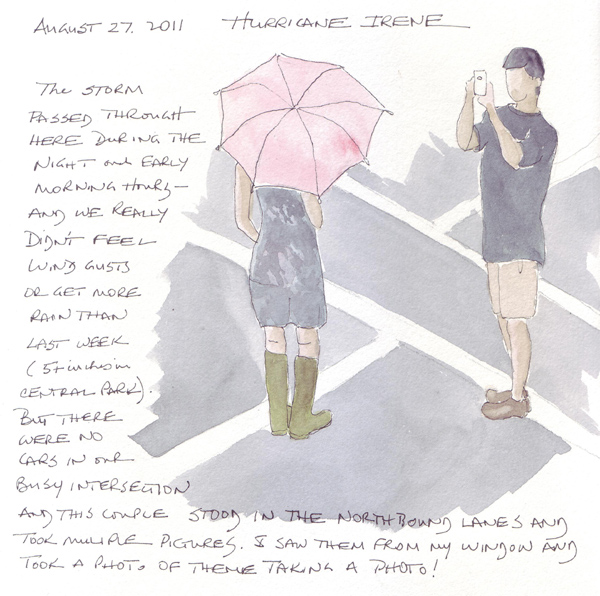 AUGUST 27. 2011 HURRICANE IRENE
The STORM
PASSED THROUGHT
HERE DURING THE
NIGHT and EARLY
MORNING HOURS—
AND WE REALLY
DIDN'T FEEL
WIND GUSTS
OR GET MORE
RAIN THAN
LAST WEEK
(5+ inches in
CENTRAL PARK).
BUT THERE
WERE NO
CARS IN OUR
BUSY INTERSECTION
AND THIS COUPLE STOOD IN THE NORTHBOUND LANES AND
TOOK MULIPLE PICTURES. I SAW THEM FROM MY WINDOW AND
TOOK A PHOTO OF THEME TAKING A PHOTO!